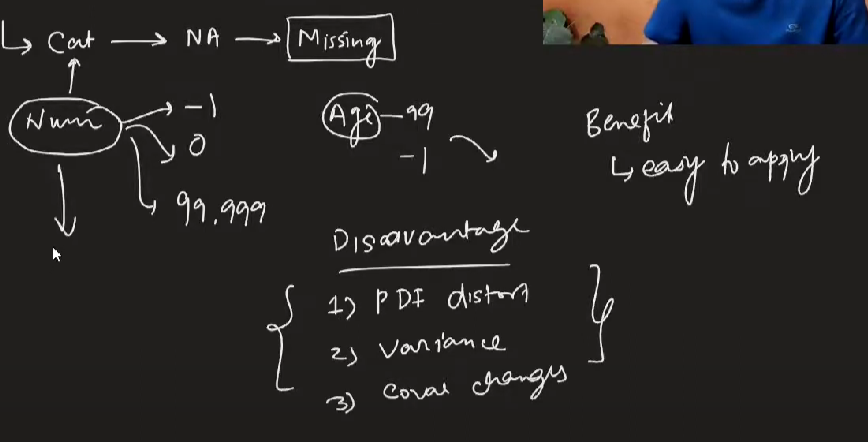 Cat → NA → Missing
Num → -1
0
99.999
Age - 99
-1
Benefit
↳ easy to apply
Disavantage
1) PDF distort
2) Variance
3) Covar changes